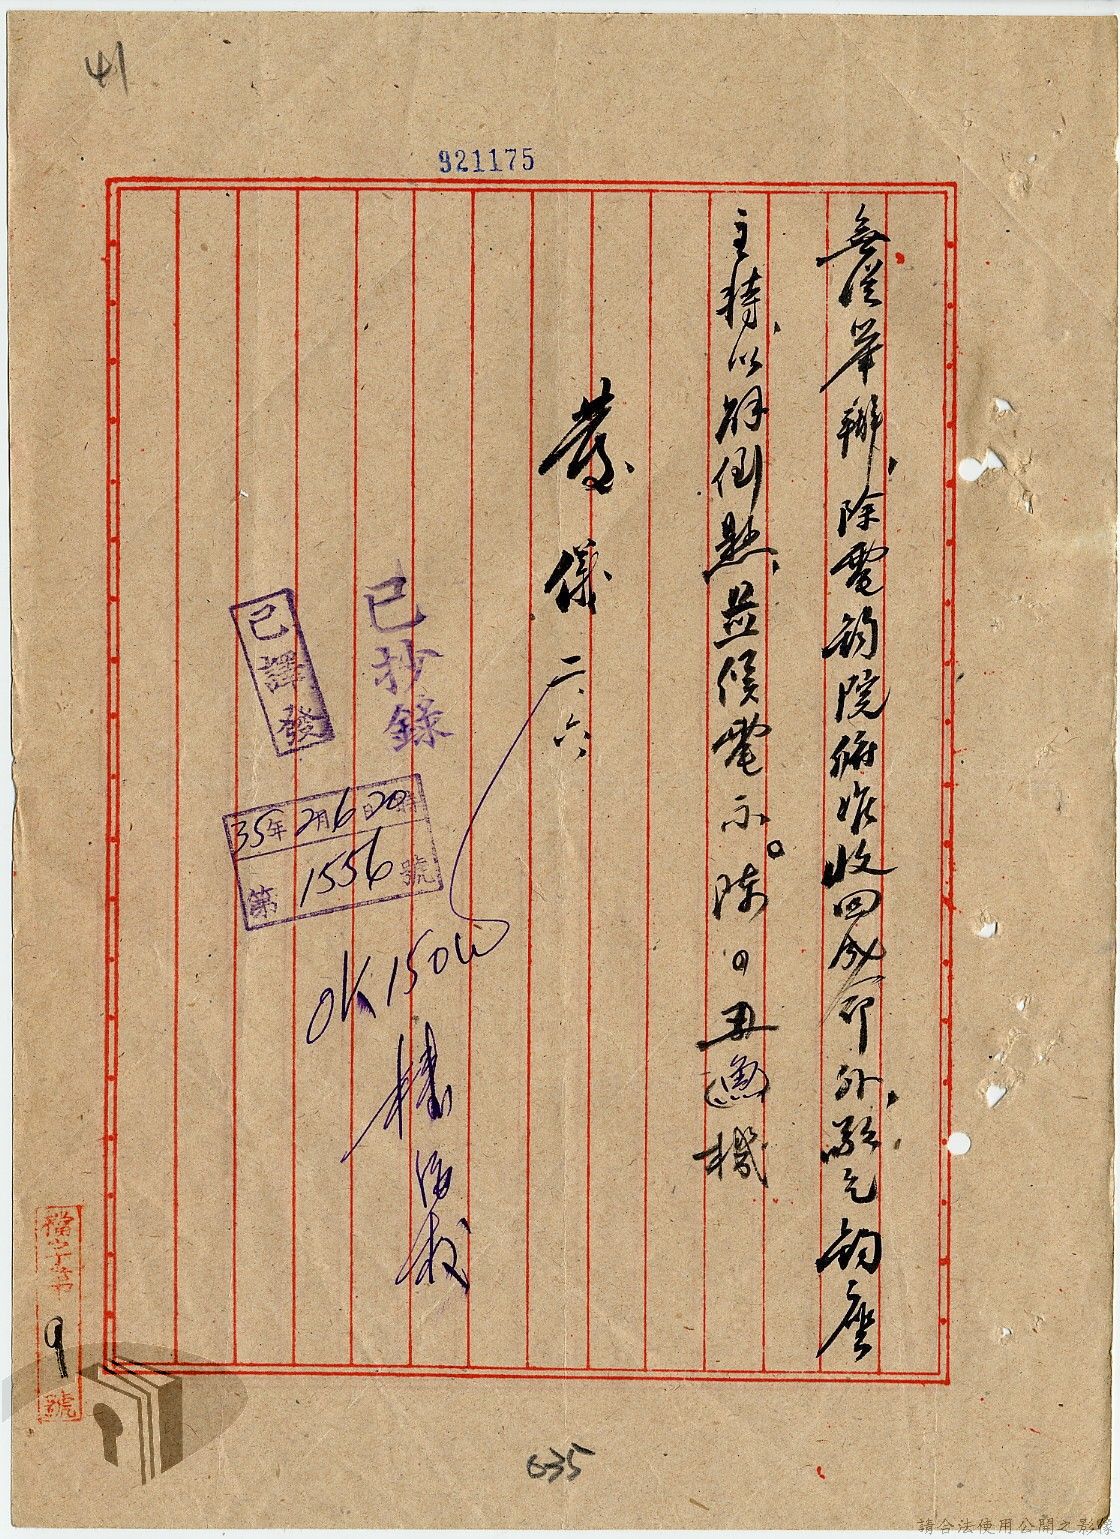 41
921175
無從舉辦、除電鈞院俯准收回成命外、敬乞鈞座
主持、以解倒懸、並候電示。陳 丑 機
儀 二、六
已抄錄
已譯發
35年2月6日20時
第1556號
OK 1500
檔字第9號
635
請合法使用公開之影像